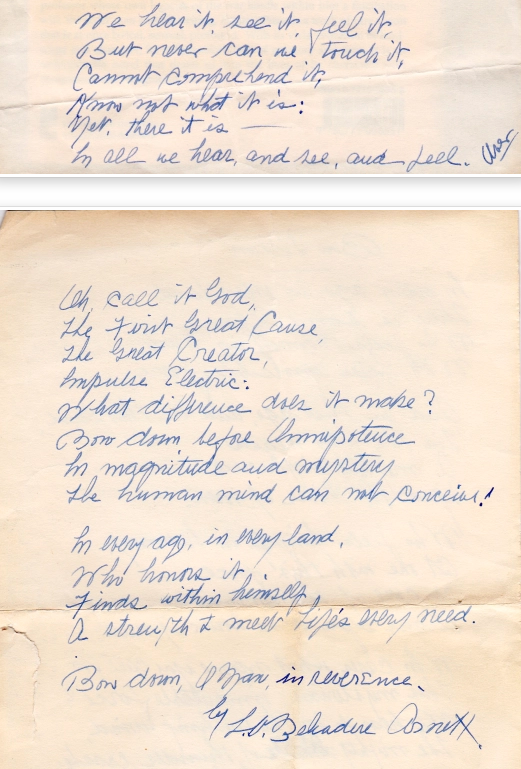 We hear it, see it, feel it,
But never can we touch it,
Cannot comprehend it,
Know not what it is:
Yet, there it is —
In all we hear, and see, and feel. Over
Oh, call it God,
The First Great Cause,
The Great Creator,
Impulse Electric:
What difference does it make?
Bow down before Omnipotence
In magnitude and mystery
The human mind can not conceive!
In every age, in every land,
Who honors it,
Finds within himself
A strength to meet Life's every need.
Bow down, O Man, in reverence.
by Arnett